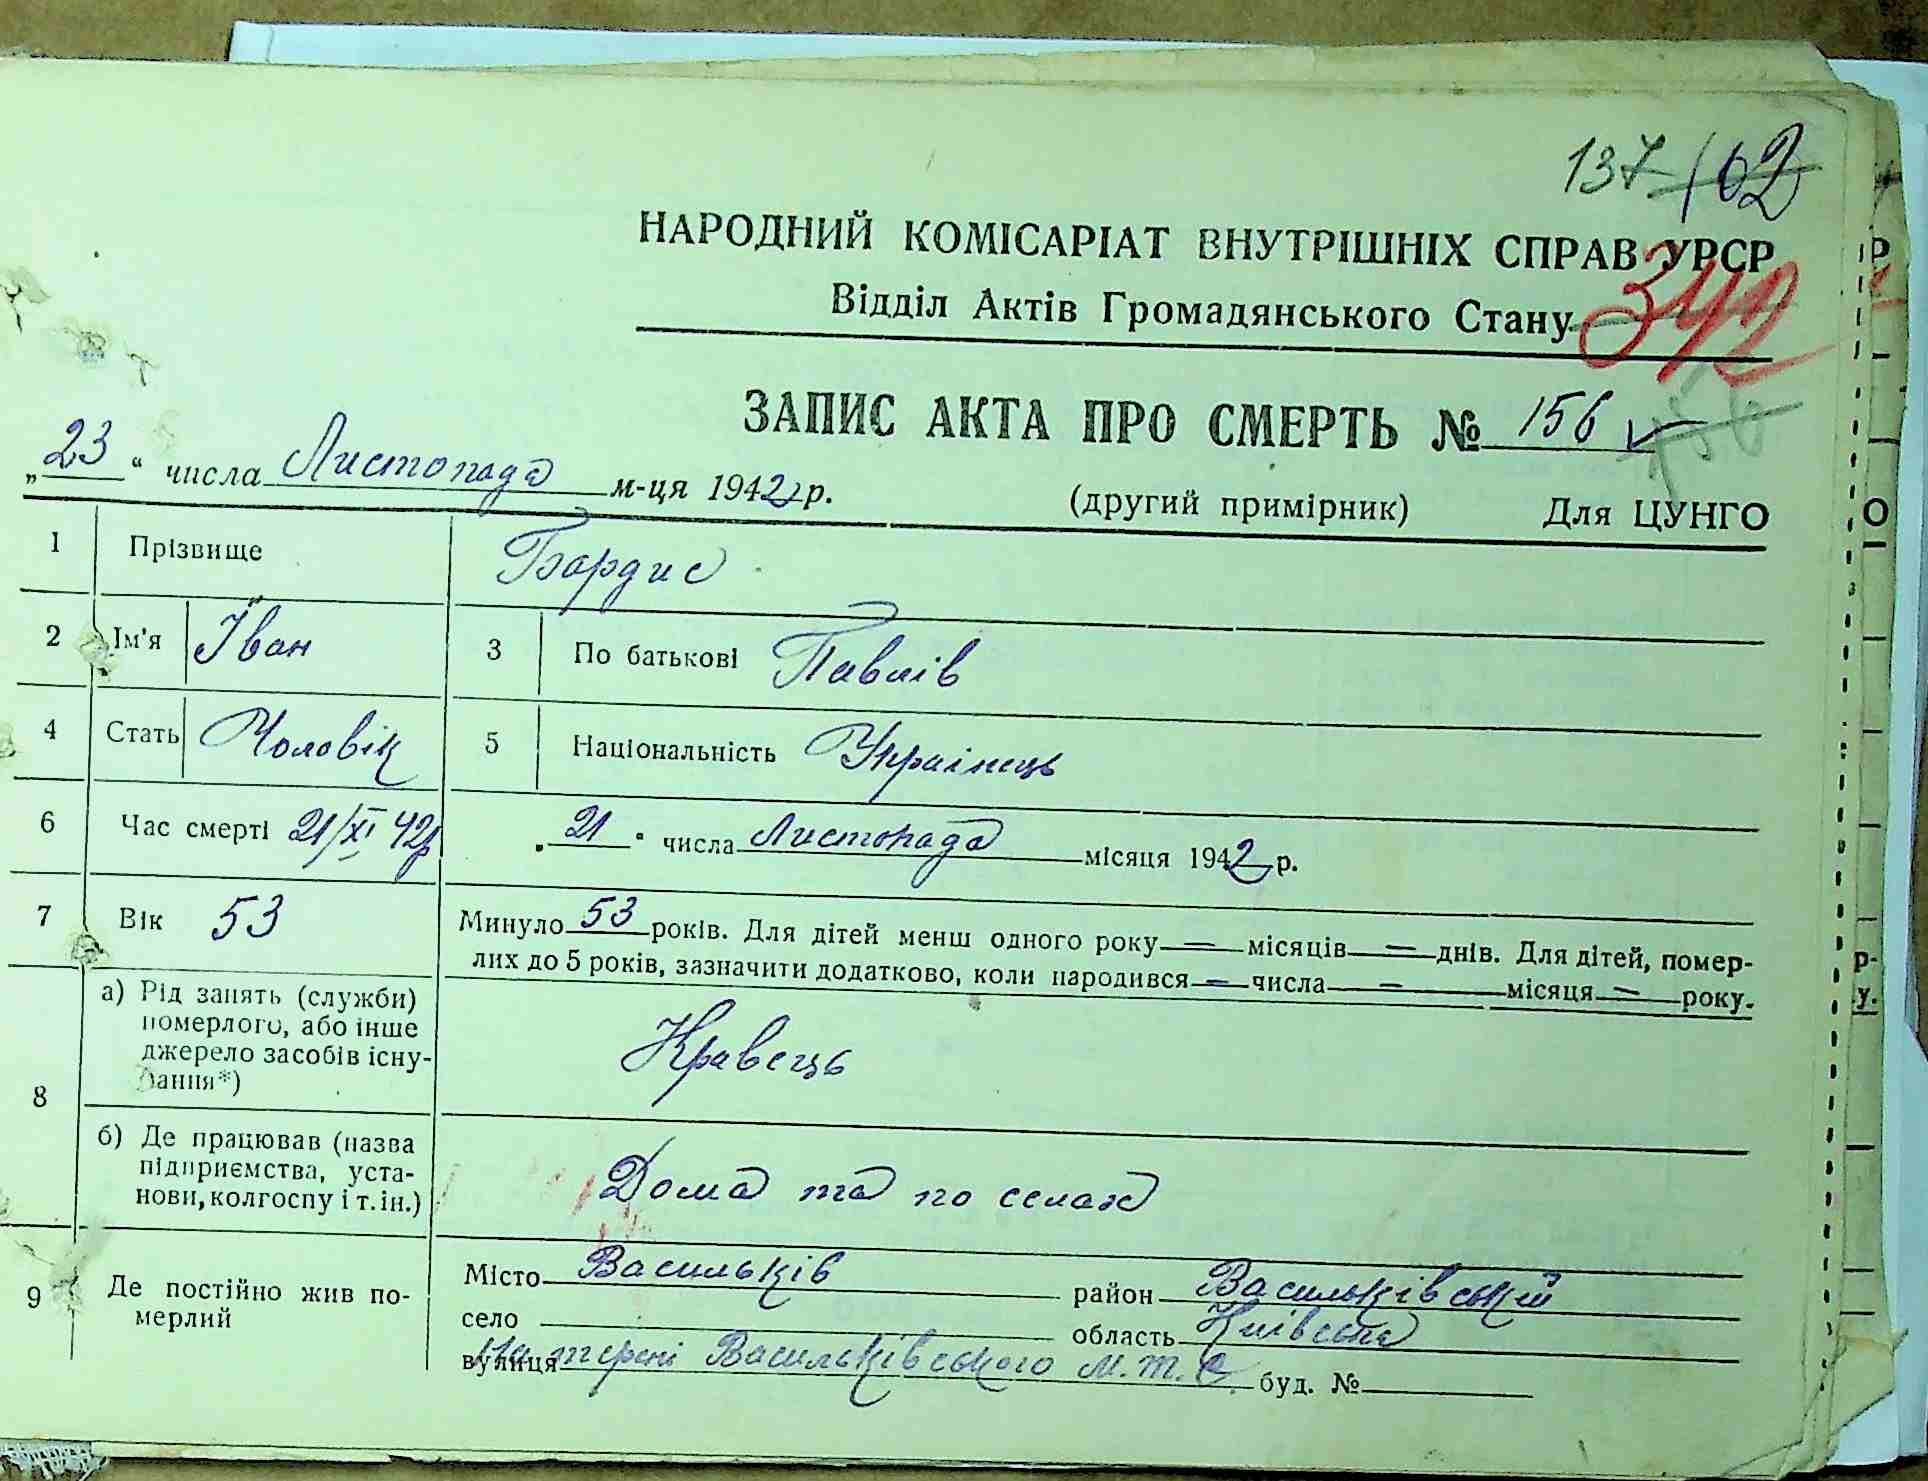 137 102
НАРОДНИЙ КОМІСАРІАТ ВНУТРІШНІХ СПРАВ УРСР
Відділ Актів Громадянського Стану 342
ЗАПИС АКТА ПРО СМЕРТЬ № 156 156
„23“ числа Листопада м-ця 1942 р. (другий примірник) Для ЦУНГО
1 Прізвище Бардис
2 Ім'я Їван 3 По батькові Павлів
4 Стать Чоловік 5 Національність Українець
6 Час смерті 21/XI 42р „21“ числа Листопада місяця 1942 р.
7 Вік 53 Минуло 53 років. Для дітей менш одного року — місяців — днів. Для дітей, помер-
лих до 5 років, зазначити додатково, коли народився — числа — місяця — року.
8 а) Рід занять (служби)
померлого, або інше
джерело засобів існу-
вання*)
Кравець
б) Де працював (назва
підприємства, уста-
нови, колгоспу і т. ін.)
Дома та по селах
9 Де постійно жив по-
мерлий
Місто Васильків район Васильківський
село область Київська
вулиця На терені Васильківського М.Т.С. буд. №